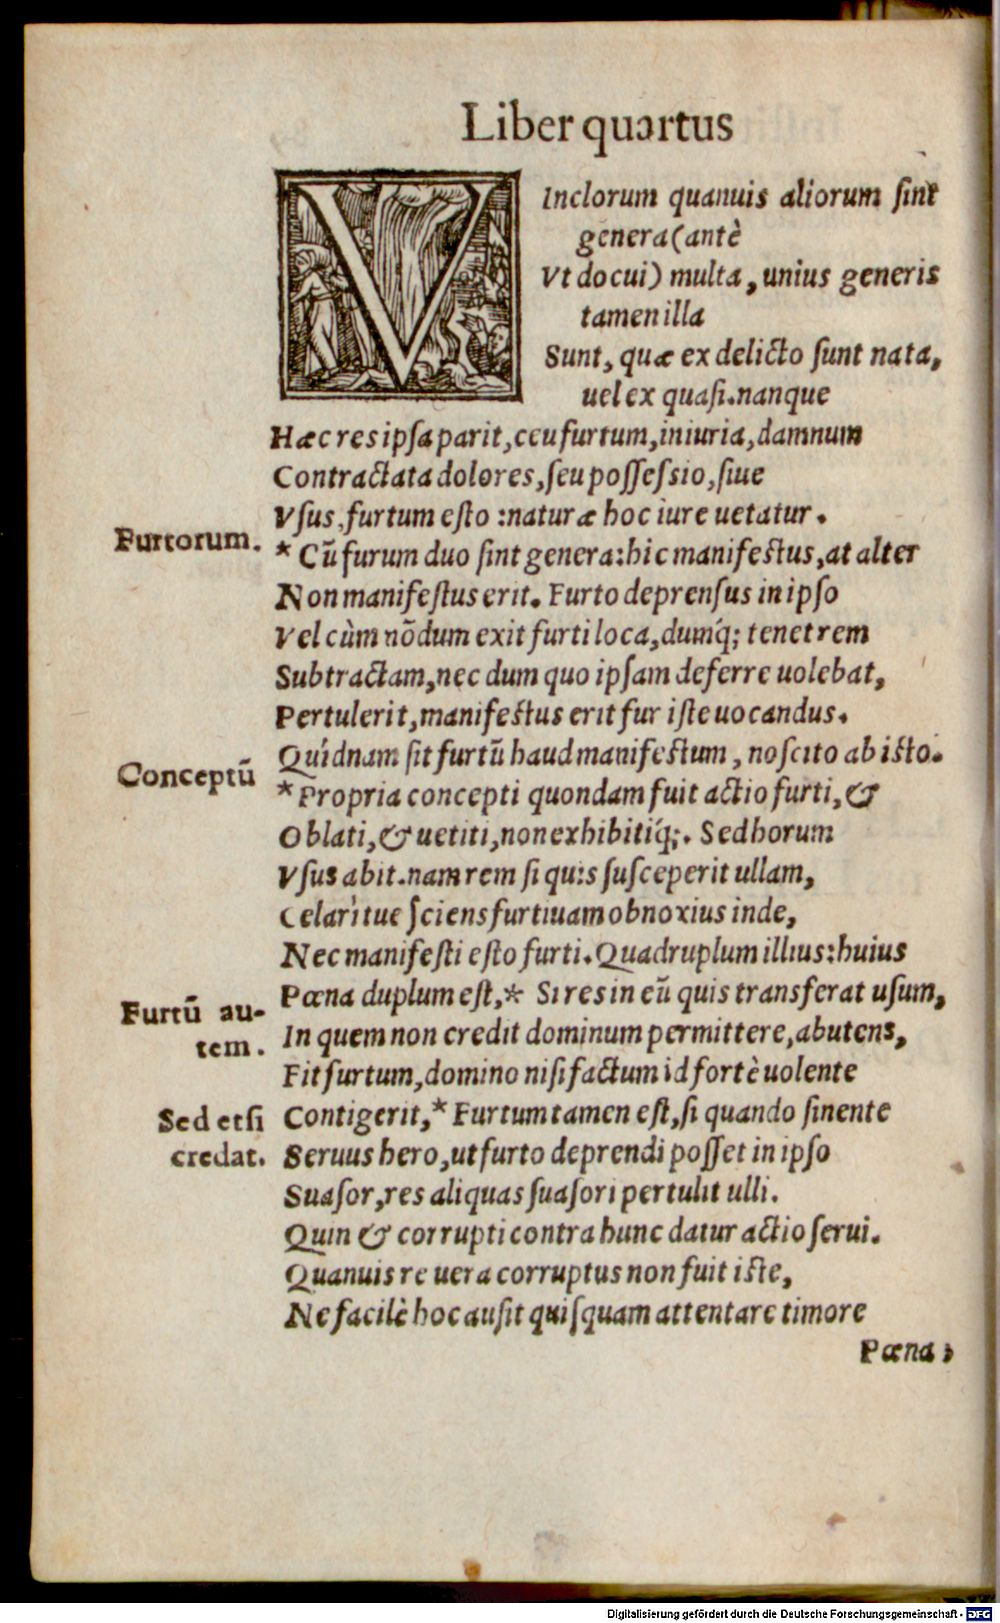 Liber quartus
VInclorum quanuis aliorum sint
genera (antè
Vt docui) multa, unius generis
tamen illa
Sunt, quæ ex delicto sunt nata,
uel ex quasi. nanque
Hæc res ipsa parit, ceu furtum, iniuria, damnum
Contractata dolores, seu possessio, siue
Vsus, furtum esto : naturæ hoc iure uetatur.
Furtorum. * Cū furum duo sint genera: hic manifestus, at alter
Non manifestus erit. Furto deprensus in ipso
Vel cùm nōdum exit furti loca, dumq́; tenet rem
Subtractam, nec dum quo ipsam deferre uolebat,
Pertulerit, manifestus erit fur iste uocandus.
Quidnam sit furtū haud manifestum, noscito ab isto.
Conceptū * Propria concepti quondam fuit actio furti, &
Oblati, & uetiti, non exhibitiq́;. Sed horum
Vsus abit. nam rem si quis susceperit ullam,
Celarìtue sciens furtiuam obnoxius inde,
Nec manifesti esto furti. Quadruplum illius: huius
Furtū au- Pœna duplum est, * Si res in eū quis transferat usum,
tem. In quem non credit dominum permittere, abutens,
Fit furtum, domino nisi factum id fortè uolente
Sed etsi Contigerit, * Furtum tamen est, si quando sinente
credat. Seruus hero, ut furto deprendi posset in ipso
Suasor, res aliquas suasori pertulit ulli.
Quin & corrupti contra hunc datur actio serui.
Quanuis re uera corruptus non fuit iste,
Ne facilè hoc ausit quisquam attentare timore
Pœnæ,
Digitalisierung gefördert durch die Deutsche Forschungsgemeinschaft - DFG